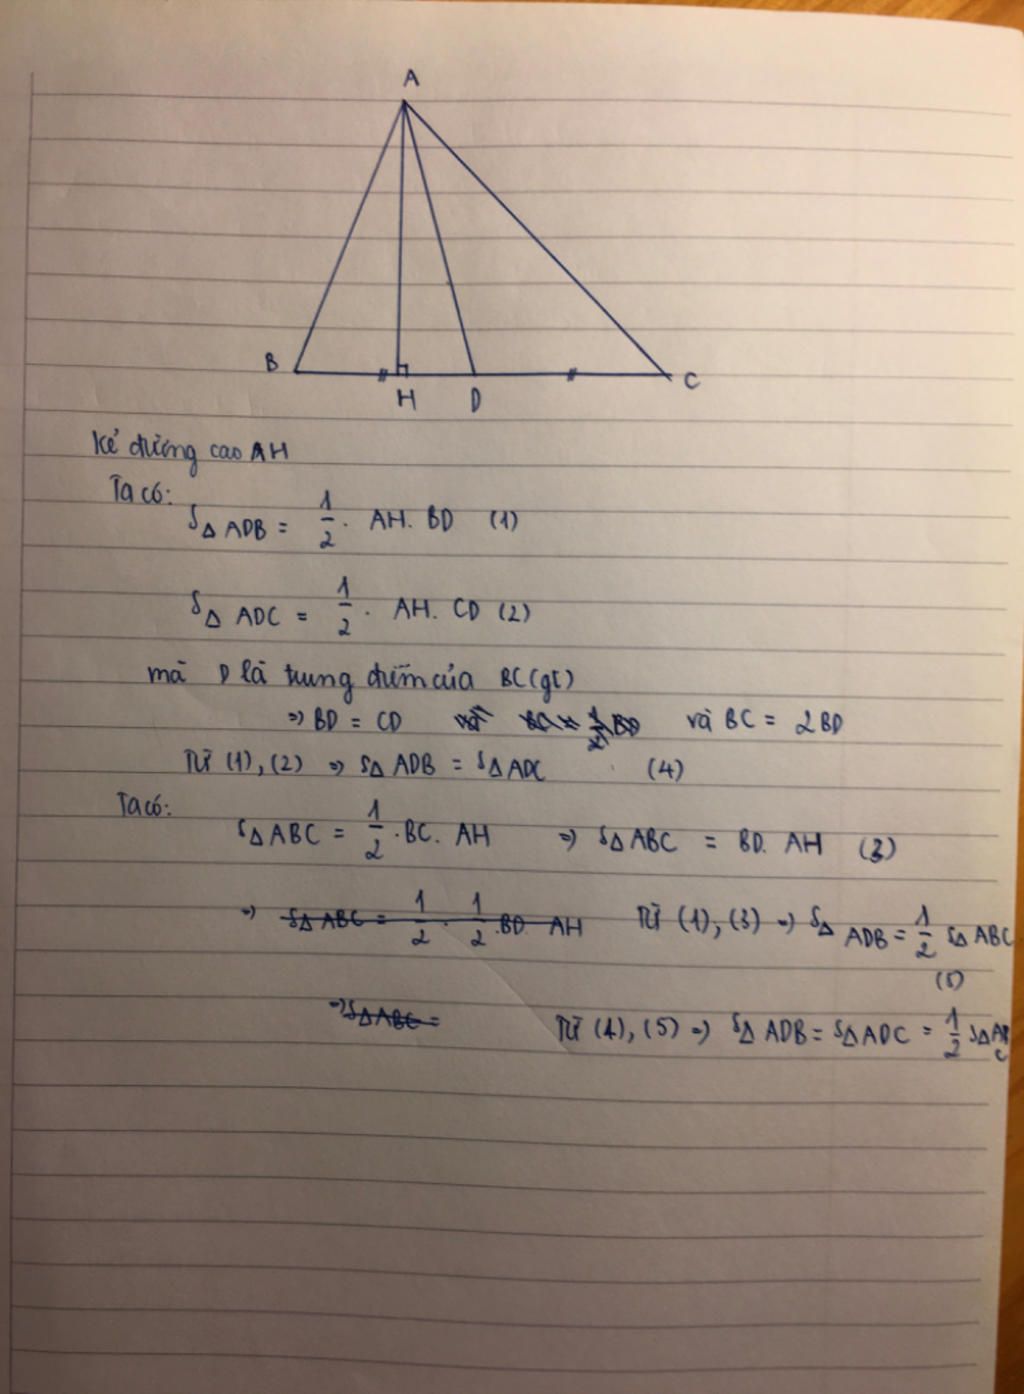 A
B
H
D
C
Kẻ đường cao AH
Ta có:
S△ ADB = 1/2 . AH. BD (1)
S△ ADC = 1/2 . AH. CD (2)
mà D là trung điểm của BC (gt)
=> BD = CD và BC = 2BD
Từ (1), (2) => S△ ADB = S△ ADC (4)
Ta có:
S△ ABC = 1/2 . BC. AH => S△ ABC = BD. AH (3)
=> S△ ABC = 1/2 . 1/2 .BD AH Từ (1), (3) => S△ ADB = 1/2 S△ ABC
(5)
=> S△ ABC = Từ (4), (5) => S△ ADB = S△ ADC = 1/2 S△ ABC